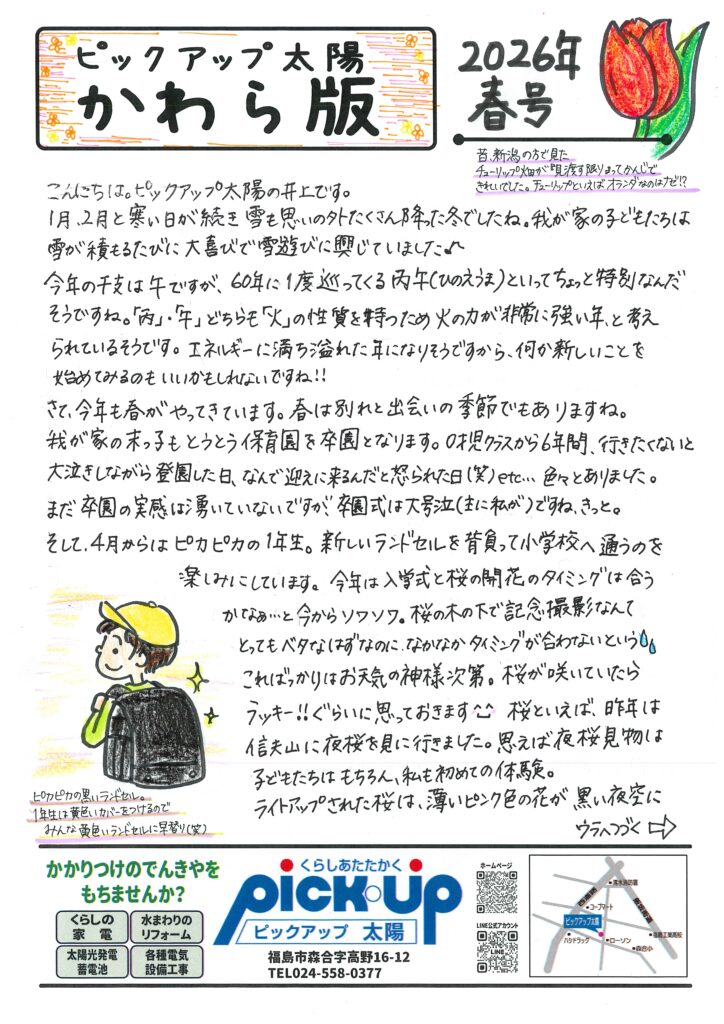 ピックアップ太陽
かわら版
2026年
春号
昔、新潟の方で見た
チューリップ畑が"見渡す限り"ってかんじで
きれいでした。チューリップといえばオランダなのはナゼ!?
こんにちは。ピックアップ太陽の井上です。
1月、2月と寒い日が続き雪も思いの外たくさん降った冬でしたね。我が家の子どもたちは
雪が積もるたびに大喜びで雪遊びに興じていました♪
今年の干支は午ですが、60年に1度巡ってくる丙午(ひのえうま)といってちょっと特別なんだ
そうですね。「丙」・「午」どちらも「火」の性質を持つため火の力が非常に強い年、と考え
られているそうです。エネルギーに満ち溢れた年になりそうですから、何か新しいことを
始めてみるのもいいかもしれないですね!!
さて、今年も春がやってきています。春は別れと出会いの季節でもありますね。
我が家の末っ子もとうとう保育園を卒園となります。0才児クラスから6年間、行きたくないと
大泣きしながら登園した日、なんで迎えに来るんだと怒られた日(笑)etc… 色々とありました。
まだ卒園の実感は湧いていないですが、卒園式は大号泣(主に私が)ですね、きっと。
そして、4月からはピカピカの1年生。新しいランドセルを背負って小学校へ通うのを
楽しみにしています。今年は入学式と桜の開花のタイミングは合う
かなぁ…と今からソワソワ。桜の木の下で記念撮影なんて
とってもベタなはずなのに、なかなかタイミングが合わないという
こればっかりはお天気の神様次第。桜が咲いていたら
ラッキー!!ぐらいに思っておきます 桜といえば、昨年は
信夫山に夜桜を見に行きました。思えば夜桜見物は
子どもたちはもちろん、私も初めての体験。
ライトアップされた桜は、薄いピンク色の花が黒い夜空に
ウラへつづく⇨
ピカピカの黒いランドセル。
1年生は黄色いカバーをつけるので
みんな黄色いランドセルに早替り(笑)
かかりつけのでんきやを
もちませんか?
くらしの
家電
水まわりの
リフォーム
太陽光発電
蓄電池
各種電気
設備工事
くらしあたたかく
PICK・UP
ピックアップ 太陽
福島市森合字高野16-12
TEL024-558-0377
ホームページ
LINE公式アカウント
LINE
清水消防署
コープマート
ピックアップ太陽
ハシドラッグ
ローソン
森合小
福島工業高校